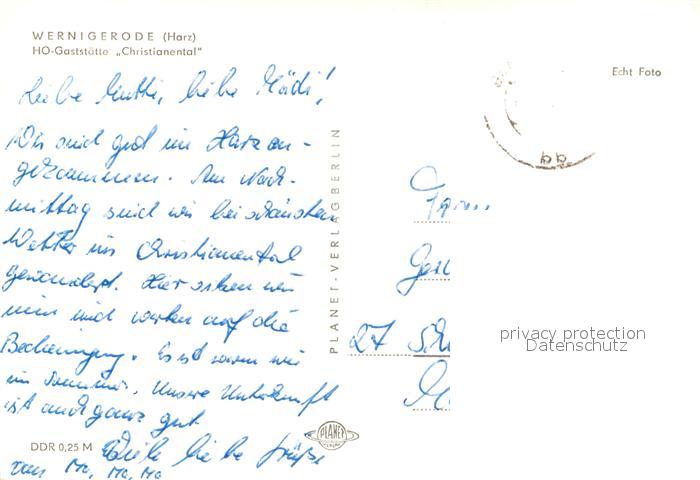 WERNIGERODE (Harz)
HO-Gaststätte „Christianental"
Echt Foto
Liebe Mutti, liebe Mädi!
Wir sind gut im Harz an-
gekommen. Am Nach-
mittag sind wir bei schönsten
Wetter ins Christianental
gewandert. Hier sitzen wir
nun und warten auf die
Bedienung. Es ist warm wie
im Sommer. Unsere Unterkunft
ist auch ganz gut
Viele liebe Grüße
von
PLANET-VERLAG BERLIN
27
privacy protection
Datenschutz
PLANET
DDR 0,25 M
bb